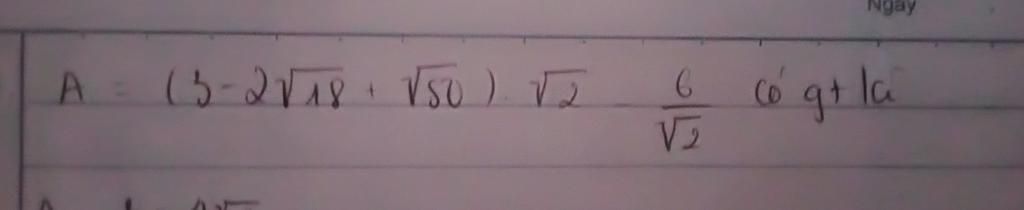 Ngày
A = (3 - 2√18 + √50) . √2 - 6/√2 có gt là